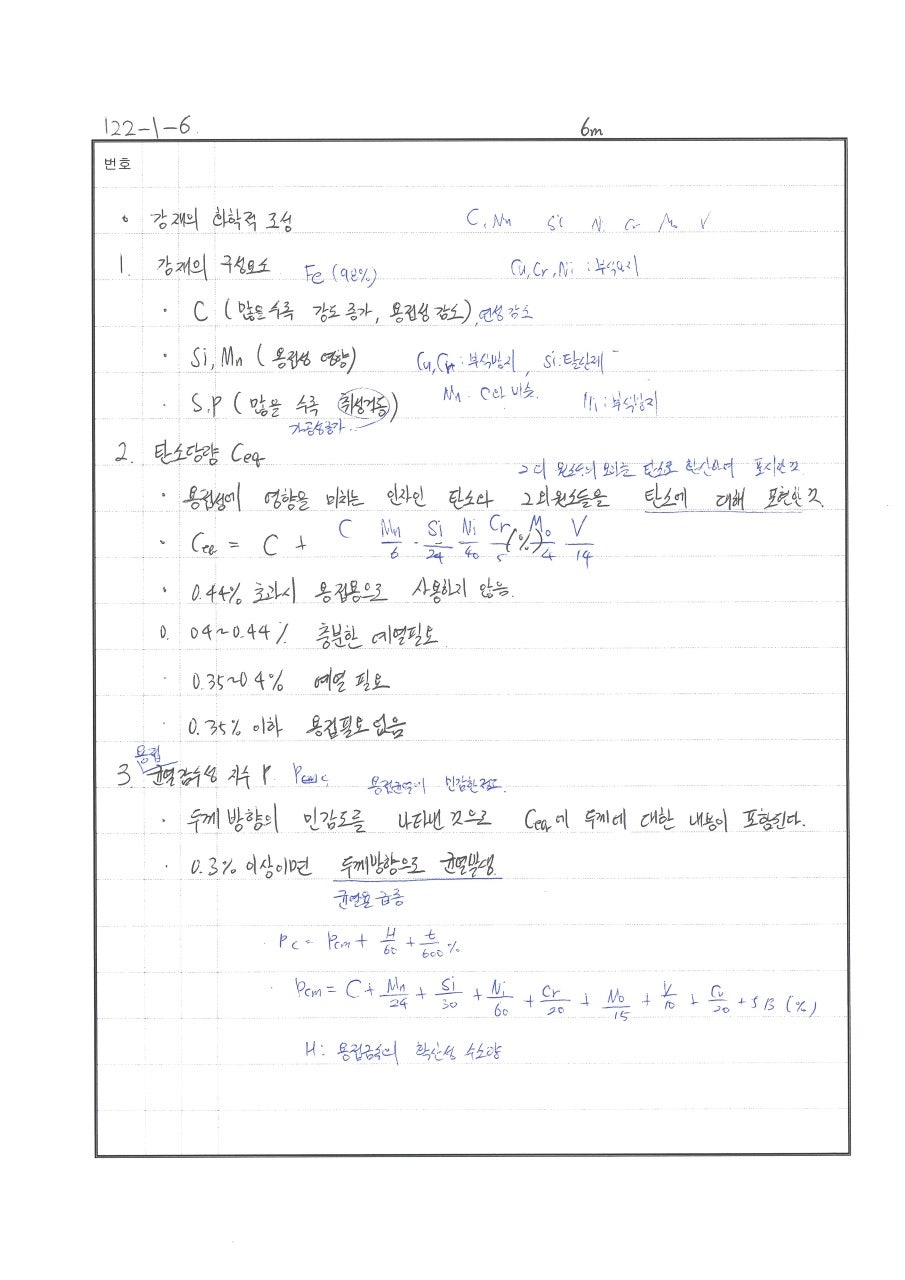 122-1-6. 6m
번호
• 강재의 화학적 조성 C, Mn Si Ni Cr Mo V
1. 강재의 구성요소 Fe (98%) Cu, Cr, Ni : 부식방지
· C (많을수록 강도 증가, 용접성 감소), 연성 감소
· Si, Mn (용접성 영향) Cu, Cr : 부식방지, Si : 탈산제
Mn : C와 비슷. Ni : 부식방지
· S, P (많을 수록 취성거동)
가공성증가..
2. 탄소당량 Ceq
그 외 원소들의 탄소로 환산하여 표시한 것
· 용접성에 영향을 미치는 인자인 탄소와 그외원소들을 탄소에 대해 표현한 것
· Ceq = C + C Mn/6 · Si/24 Ni/40 Cr/5 (%) Mo/4 V/14
· 0.44% 초과시 용접용으로 사용하지 않음.
0. 04~0.44% 충분한 예열필요
· 0.35~04% 예열 필요
· 0.35% 이하 용접필요없음
용접
3. 균열감수성 지수 P Pc 용접균열에 민감한정도.
· 두께방향의 민감도를 나타낸 것으로 Ceq에 두께에 대한 내용이 포함된다.
· 0.3% 이상이면 두께방향으로 균열발생
균열율 급증
· Pc = Pcm + H/60 + t/600 %
· Pcm = C + Mn/24 + Si/30 + Ni/60 + Cr/20 + Mo/15 + V/10 + Cu/20 + 5B (%)
H : 용접금속의 확산성 수소량